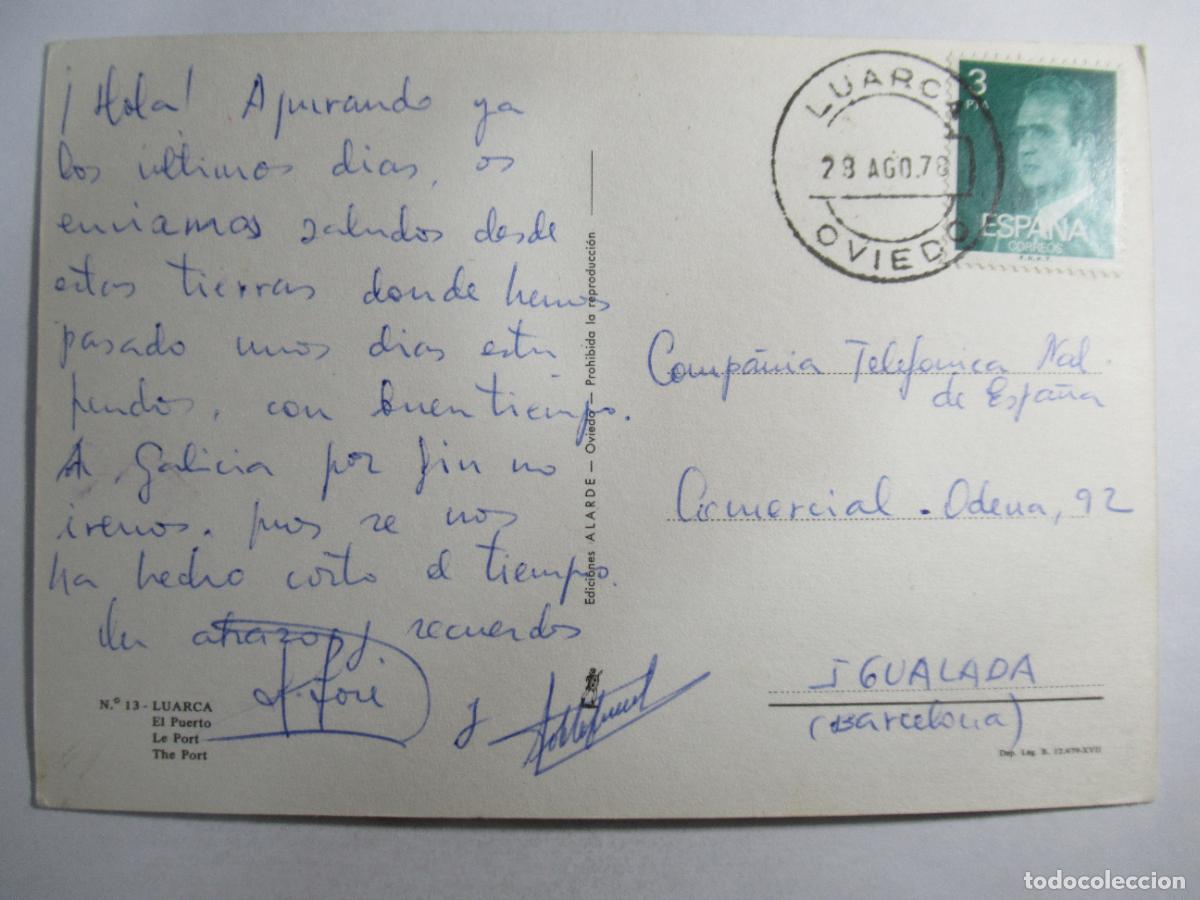 ¡Hola! Apurando ya
los últimos dias, os
enviamos saludos desde
estas tierras donde hemos
pasado unos dias estu
pendos, con buen tiempo.
A Galicia por fin no
iremos. pues se nos
ha hecho corto el tiempo.
Un abrazo y recuerdos
José
y
N.º 13 - LUARCA
El Puerto
Le Port
The Port
Ediciones ALARDE — Oviedo — Prohibida la reproducción
LUARCA
28 AGO.78
OVIEDO
3
PTA
ESPAÑA
CORREOS
F.N.M.T.
Compañia Telefonica Nal.
de España
Comercial - Odena, 92
IGUALADA
(Barcelona)
Dep. Leg. B. 12.679-XVII
todocoleccion